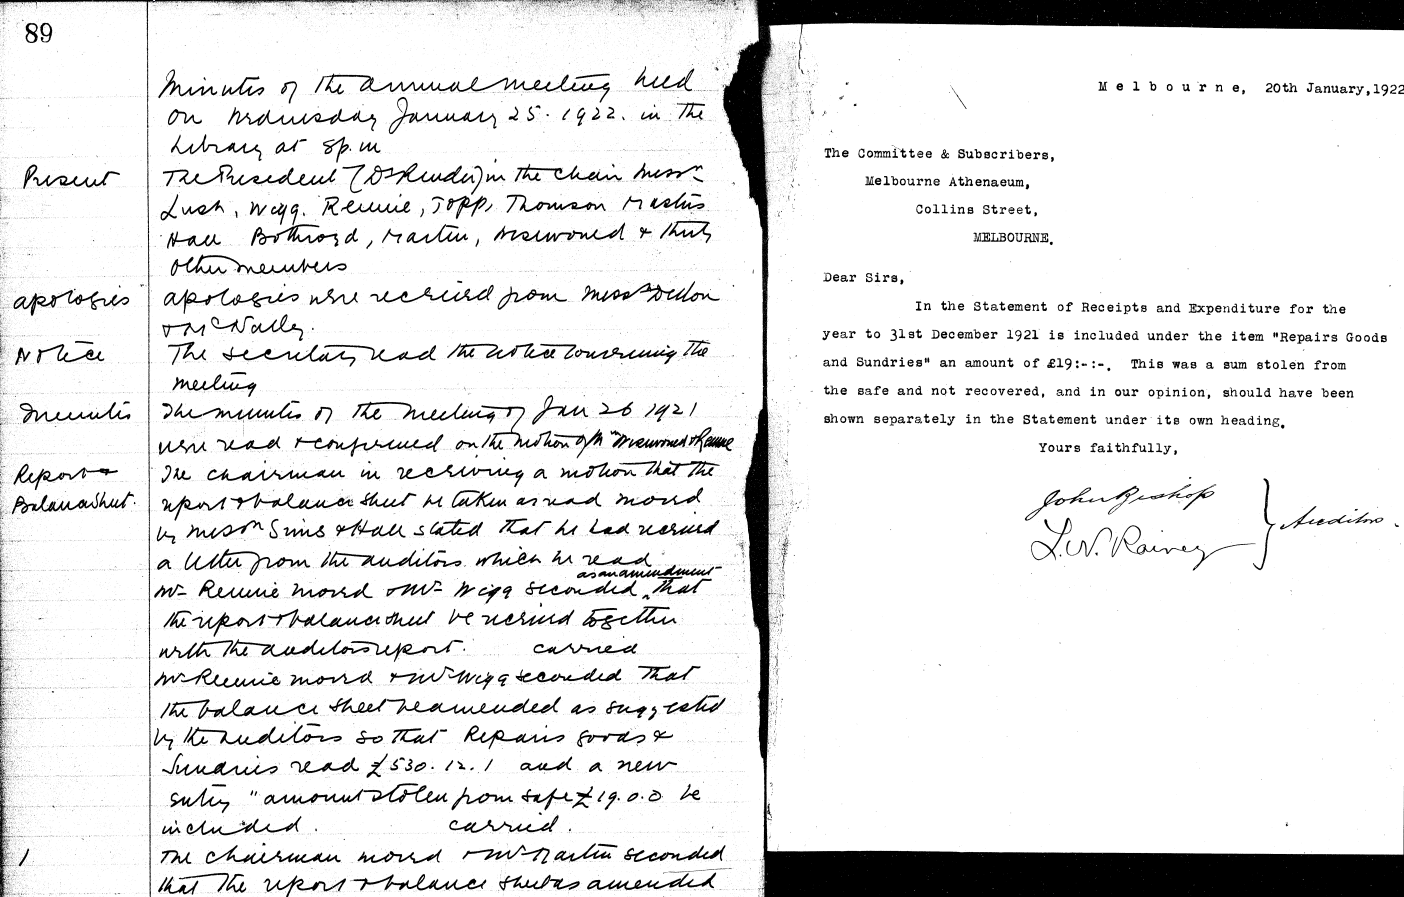 89
Minutes of the annual meeting held
on Wednesday January 25. 1922. in the
Library at 8 p.m
Present
The President (Dr Render) in the chair Messrs
Lush, Wigg, Rennie, Topp, Thomson Masters
Hall Bothroyd, Martin, & thirty
other members
apologies
apologies were received from Messrs
& McNally.
Notice
The secretary read the notice convening the
meeting
Minutes
The minutes of the meeting of Jan 26 1921
were read & confirmed on the motion of & Rennie
Report &
Balance Sheet.
The chairman in receiving a motion that the
report & balance sheet be taken as read moved
by Messrs Sims & Hall stated that he had received
a letter from the auditors which he read
as an amendment
Mr Rennie moved & Mr Wigg seconded that
the report & balance sheet be received together
with the auditors report. carried
Mr Rennie moved & Mr Wigg seconded that
the balance sheet be amended as suggested
by the auditors so that Repairs goods &
Sundries read £530. 12. 1 and a new
entry "amount stolen from safe £19. 0. 0 be
included. carried.
The chairman moved & Mr Martin seconded
that the report & balance sheet as amended
Melbourne, 20th January, 1922
The Committee & Subscribers,
Melbourne Athenaeum,
Collins Street,
MELBOURNE.
Dear Sirs,
In the Statement of Receipts and Expenditure for the
year to 31st December 1921 is included under the item "Repairs Goods
and Sundries" an amount of £19:-:-. This was a sum stolen from
the safe and not recovered, and in our opinion, should have been
shown separately in the Statement under its own heading.
Yours faithfully,
John Bishop
L. N. Rainey
Auditors.